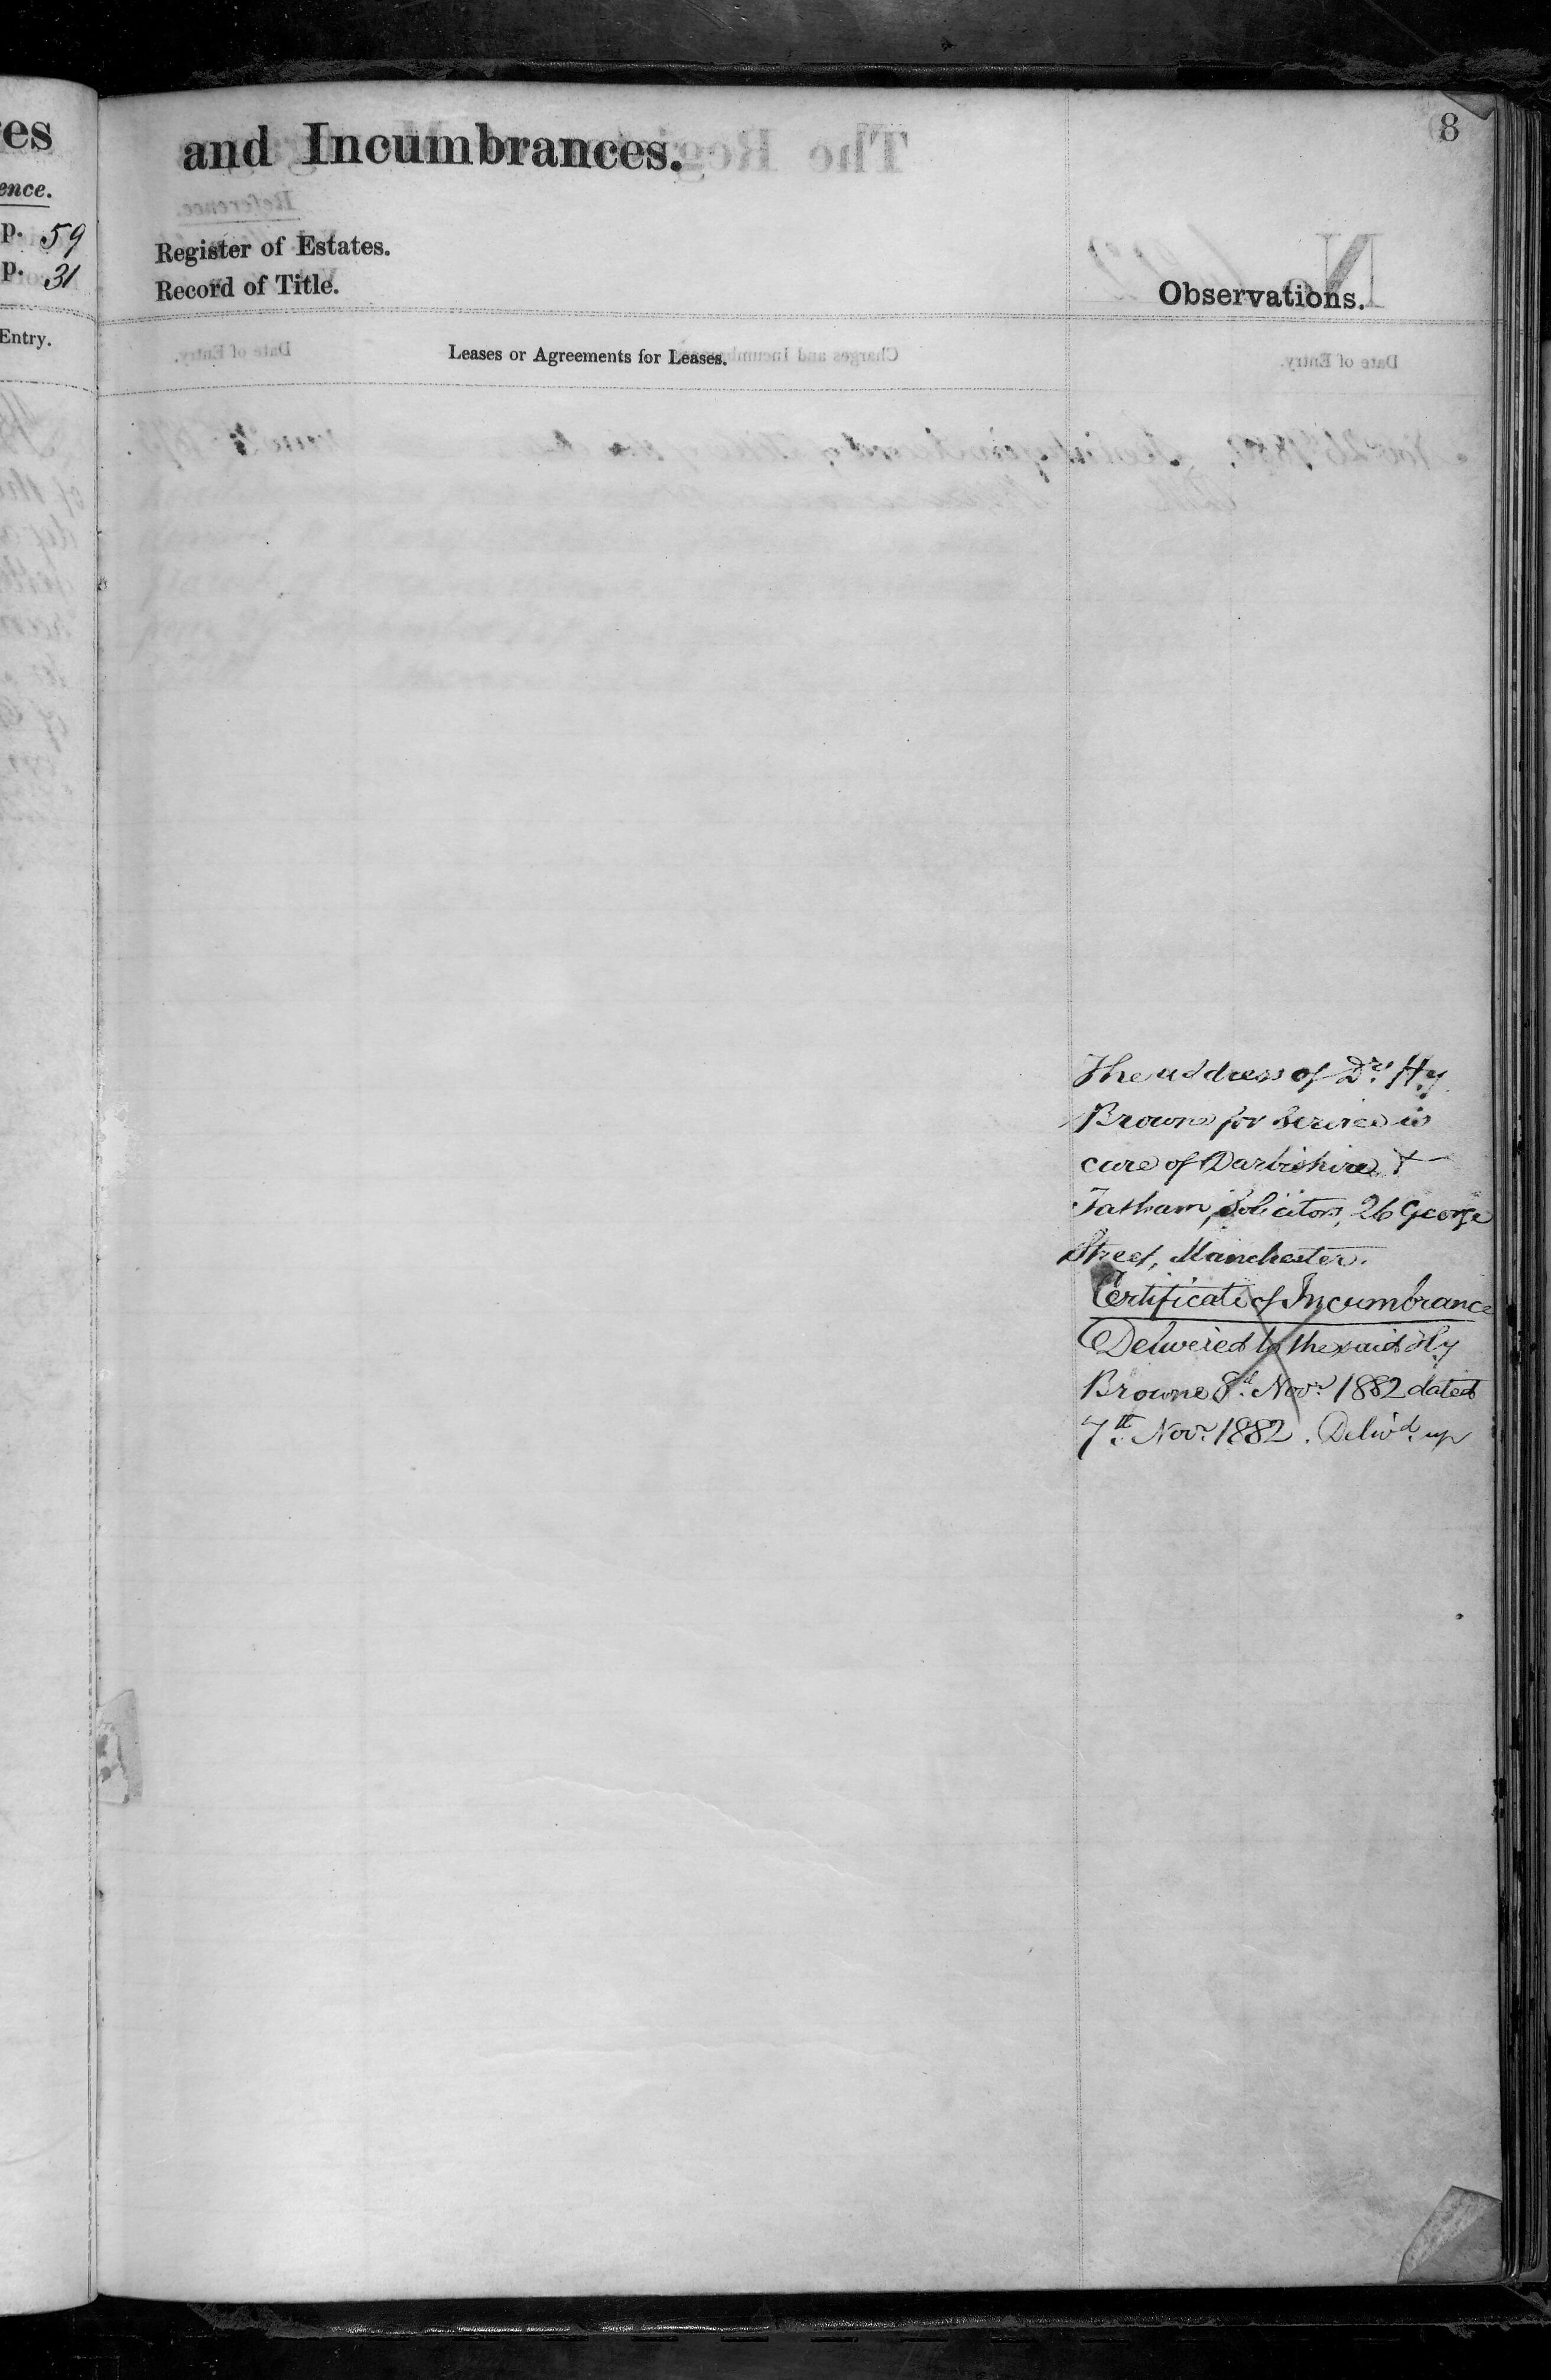 es
ence.
p. 59
p. 31
Entry.
and Incumbrances.
8
Register of Estates.
Record of Title.
Observations.
Leases or Agreements for Leases.
The address of Dr. Hy
Browne for Service is
care of Darbishire &
Tatham, Solicitors, 26 George
Street, Manchester.
Certificate of Incumbrance
Delivered to the said Hy
Browne 8th Novr 1882 dated
7th Novr 1882. Delivd. up